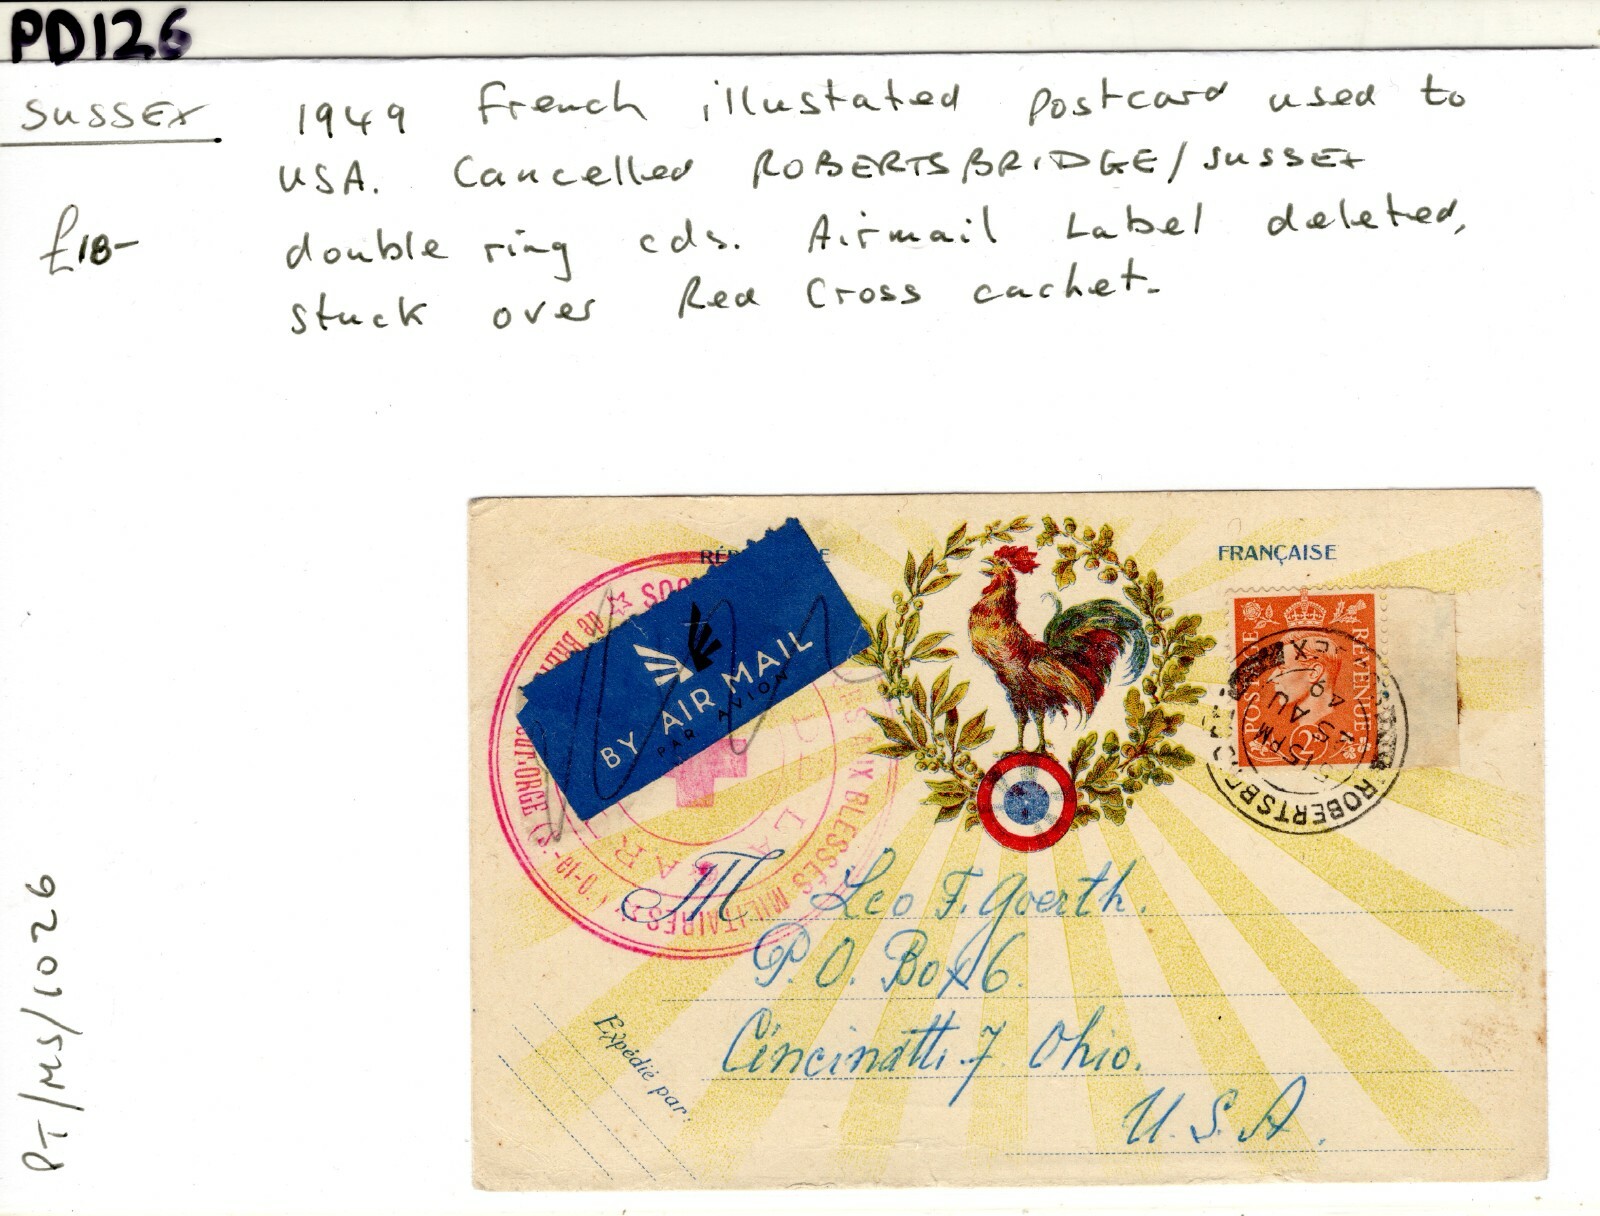 PD126
SUSSEX
1949 French illustated postcard used to
USA. Cancelled ROBERTSBRIDGE/SUSSEX
£18-
double ring cds. Airmail Label deleted,
stuck over Red Cross cachet.
PT/MS/1026
FRANÇAISE
BY AIR MAIL
PAR AVION
BLESSÉS MILITAIRES
POSTAGE REVENUE
2D
ROBERTSB
5 15 PM
5 AU
49
EX
M Leo F. Goerth.
P.O. Box 6.
Cincinatti 7 Ohio.
U.S.A.
Expédié par